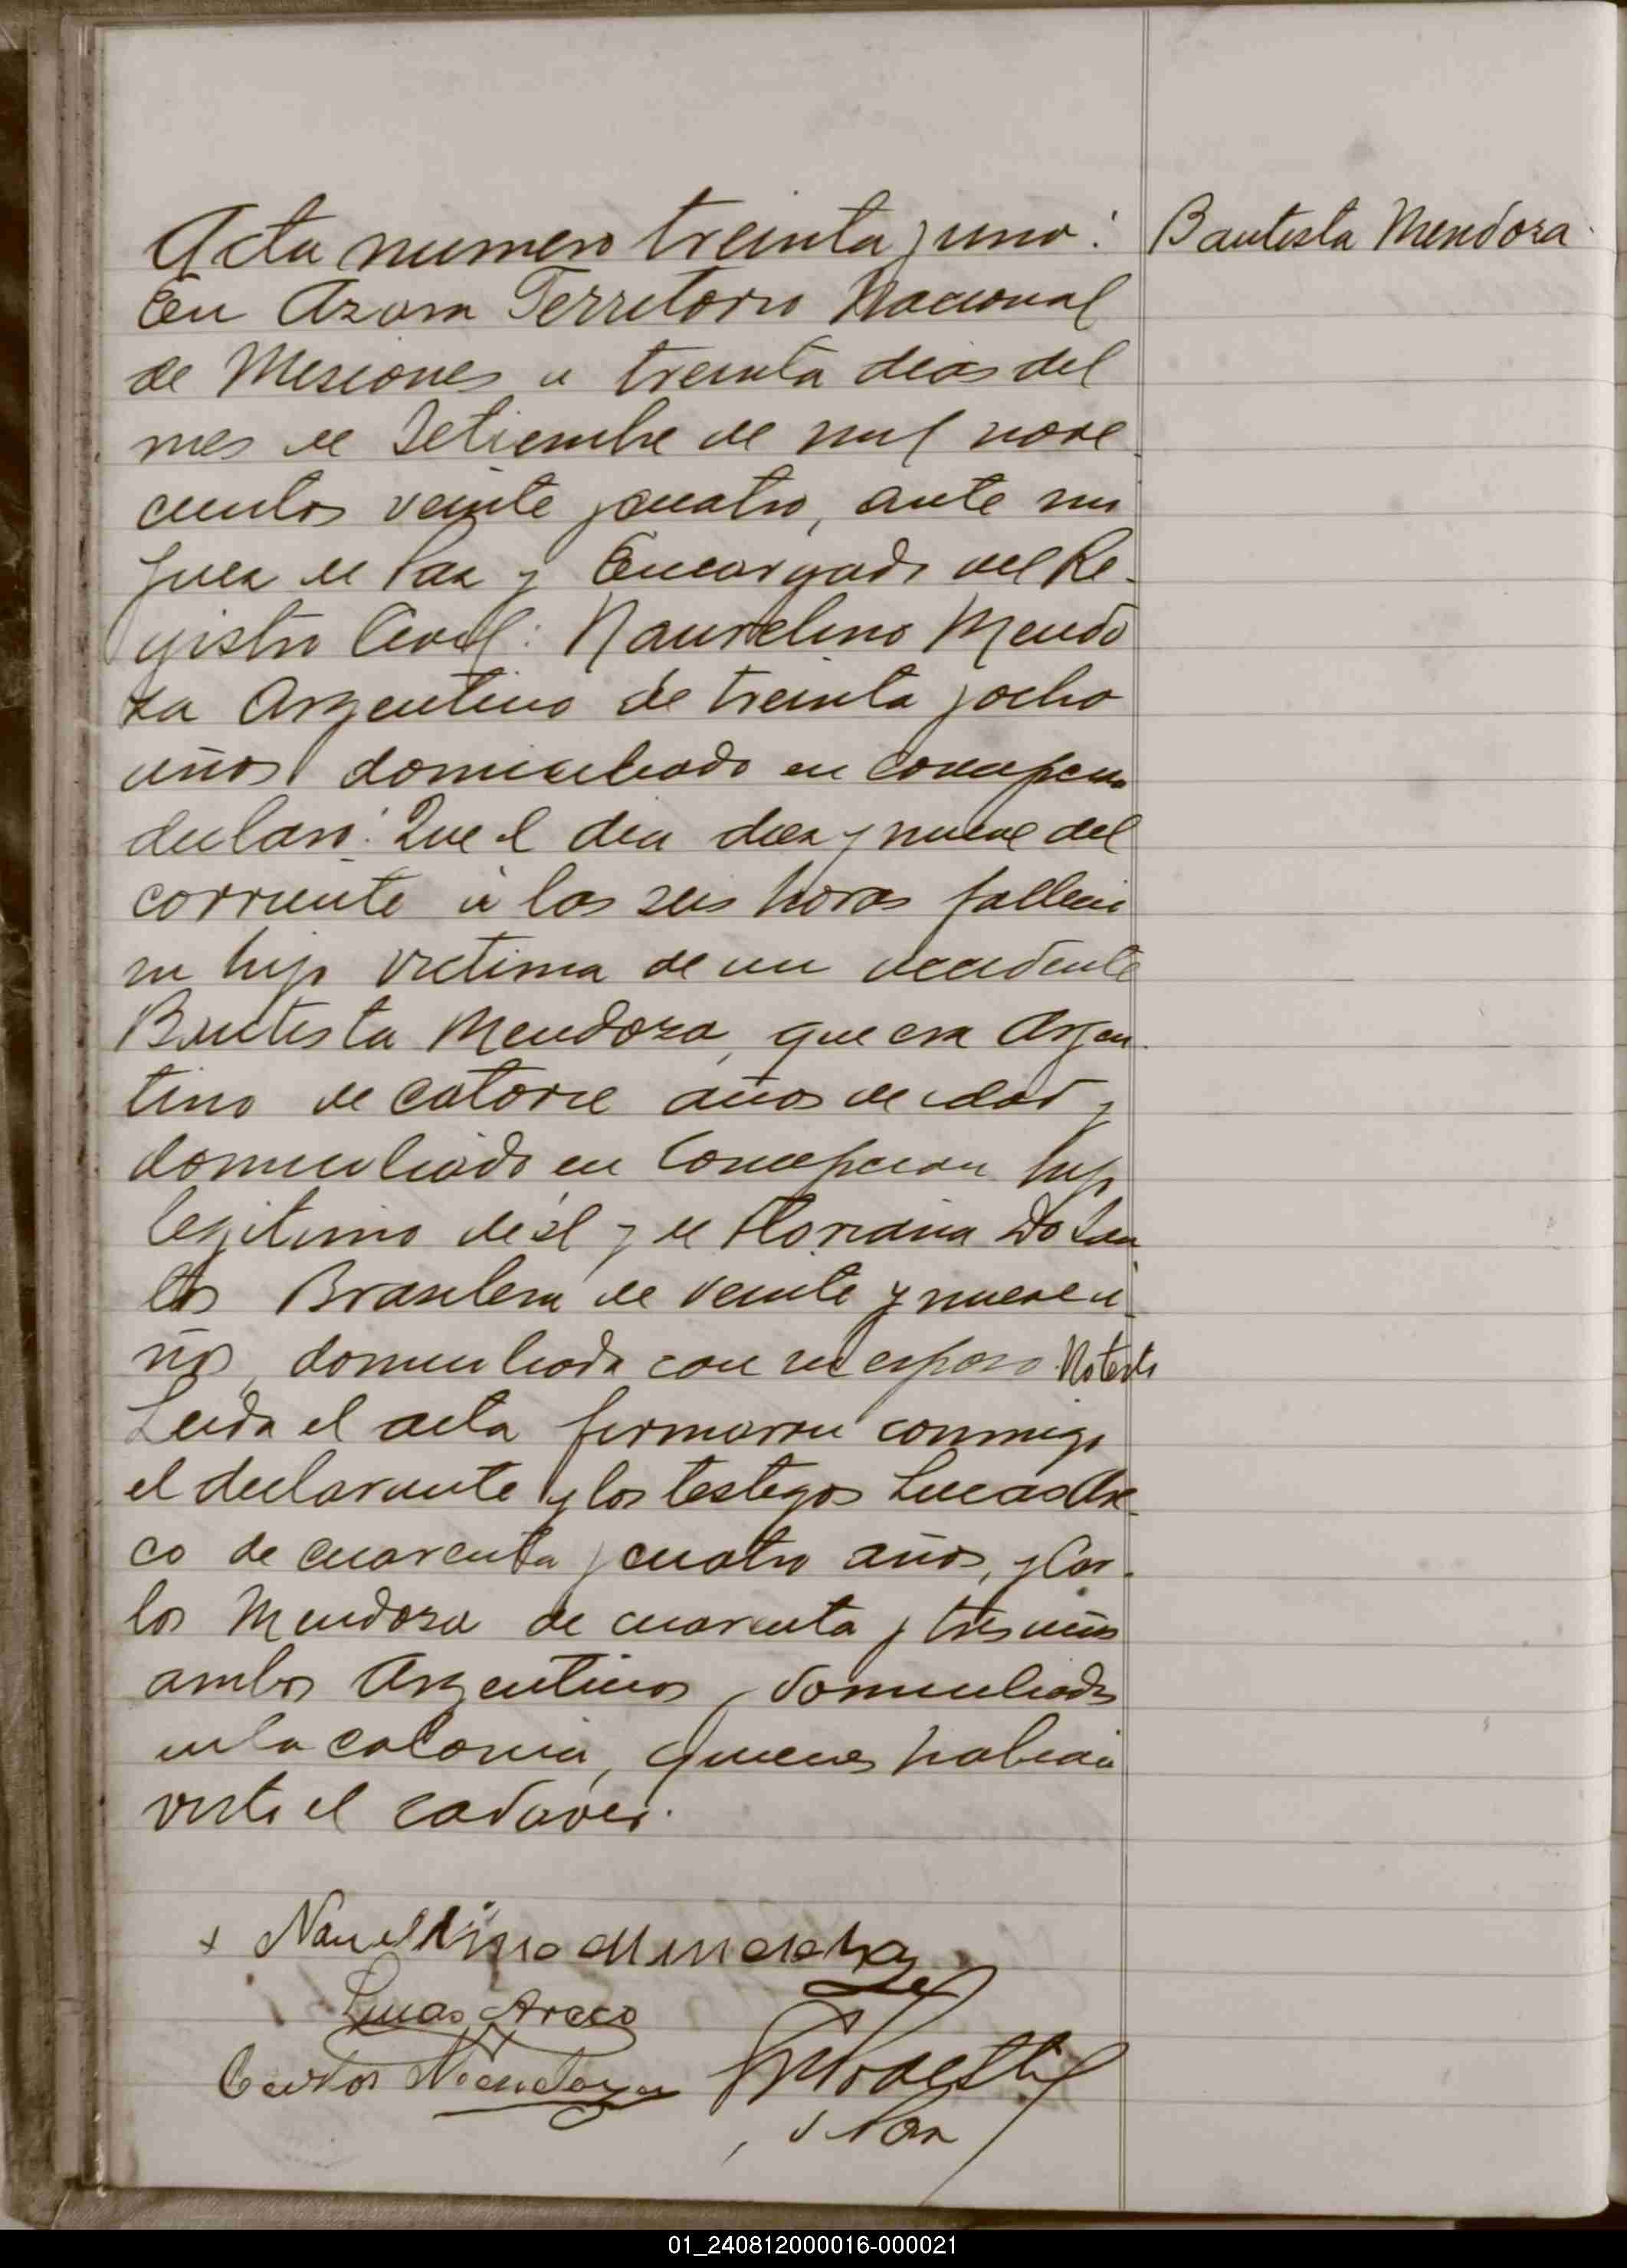 Acta numero treinta y uno:
Bautista Mendoza
En Azara Territorio Nacional
de Misiones a treinta dias del
mes de Setiembre de mil nove
cientos veinte y cuatro, ante mi
Juez de Paz y Encargado del Re-
gistro Civil: Naurelino Mendo
za Argentino de treinta y ocho
años domiciliado en Concepcion
declaró: Que el dia diez y nueve del
corriente á las seis horas falleció
su hijo victima de un accidente
Bautista Mendoza, que era Argen-
tino de catorce años de edad y
domiciliado en Concepcion hijo
legitimo de él y de Floriana Do San
tos Brasilera de veinte y nueve a-
ños, domiciliada con su esposo. No testó
Leida el acta firmaron conmigo
el declarante y los testigos Lucas Are-
co de cuarenta y cuatro años, y Car-
los Mendoza de cuarenta y tres años
ambos Argentinos, domiciliados
en la colonia, quienes habian
visto el cadáver.
+ Naurelino Mendoza
Lucas Areco
Carlos Mendoza
J Paz
01_240812000016-000021